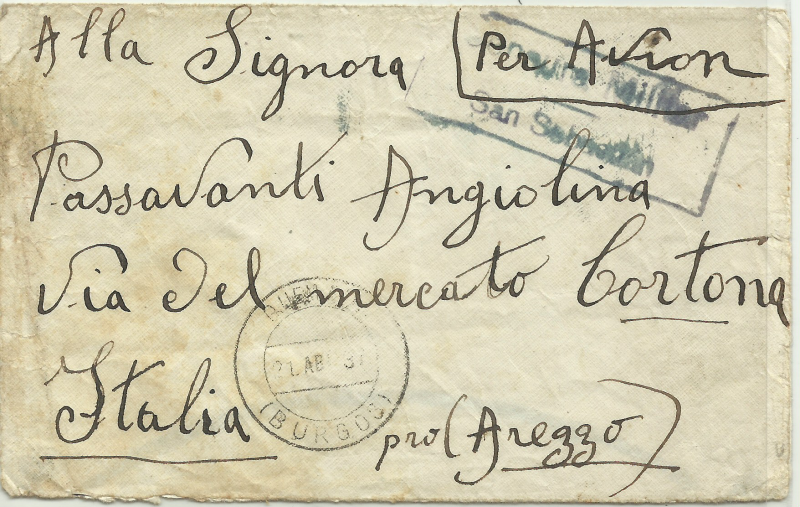 Alla Signora Per Avion
Militar
San Sebastián
Passavanti Angiolina
Via del mercato Cortona
21 AB 37
Italia
(BURGOS)
pro (Arezzo)